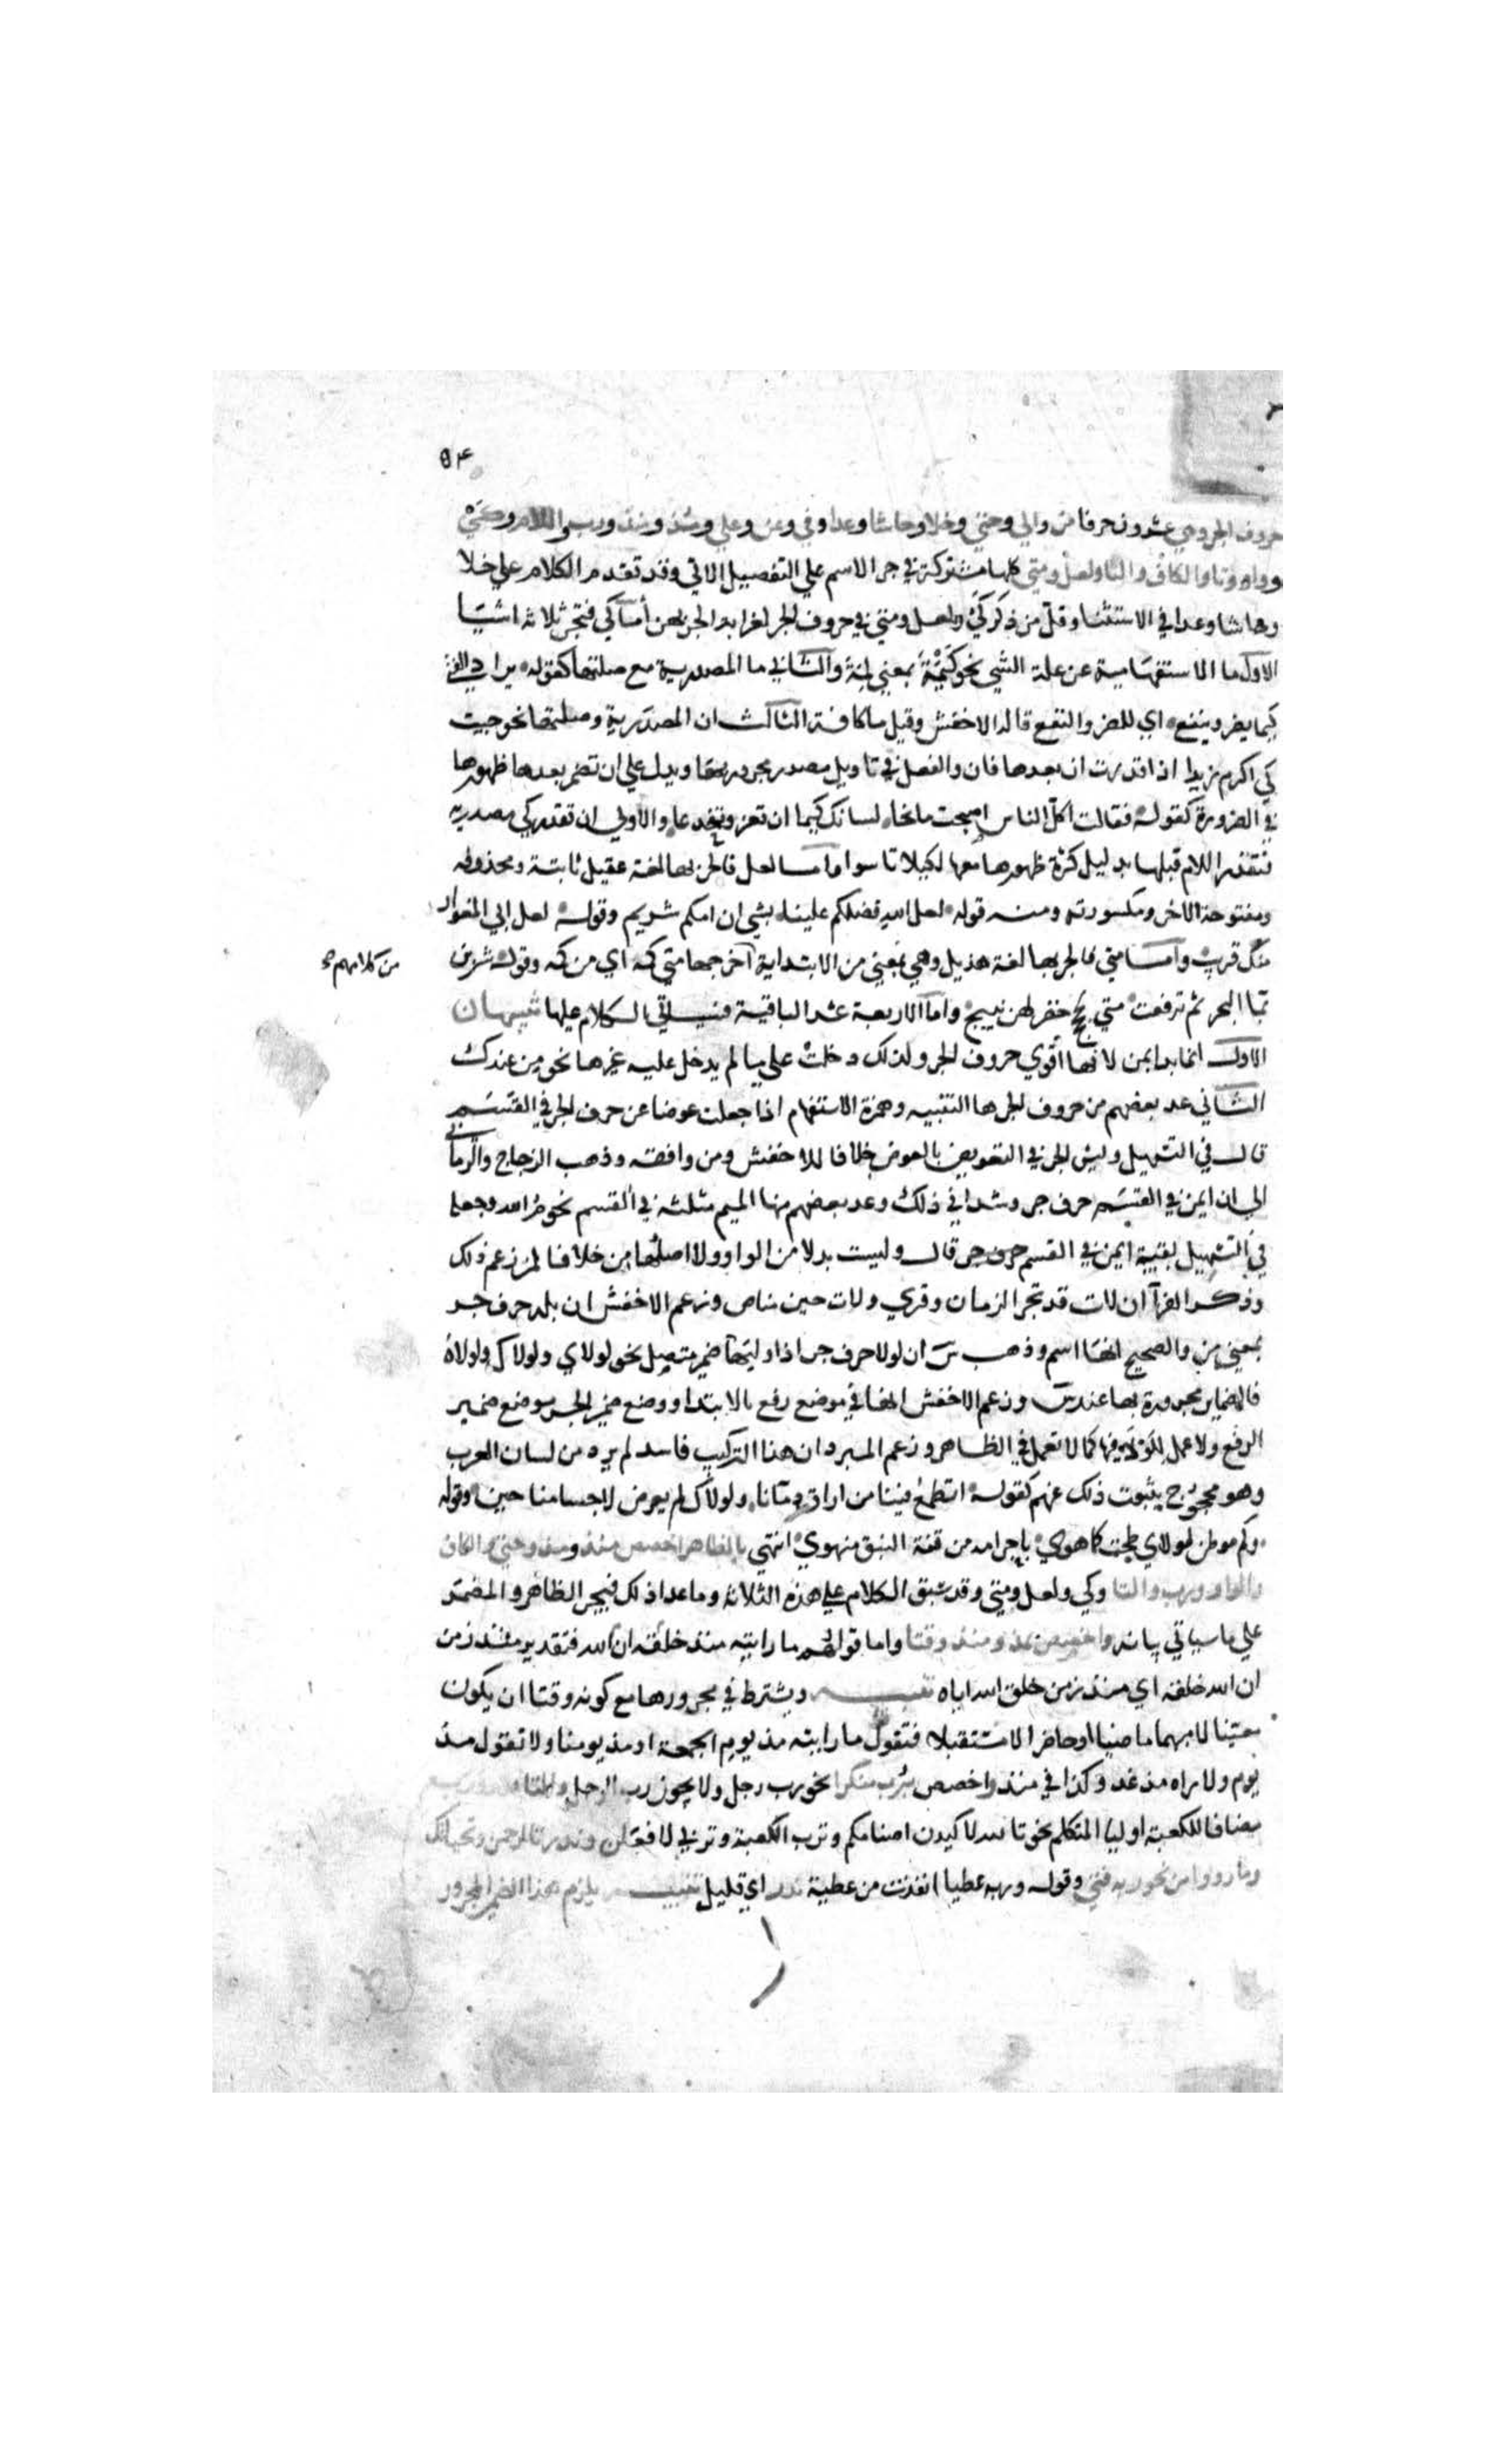 ٥٤
حروف الجر وهي عشرون حرفا من والي وحتي وخلا وحاشا وعدا وفي وعن وعلي ومذ ومنذ ورب واللام وكي
وواو وتا والكاف والبا ولعل ومتي كلها مشتركة في جر الاسم علي التفصيل الاتي وقد تقدم الكلام علي خلا
وحاشا وعدا في الاستثنا وقل من ذكر كي ولعل ومتي في حروف الجر لغرابة الجر بهن أما كي فتجر ثلاثة اشيا
الاول ما الاستفهامية عن علة الشي نحو كيمه بمعني لمه والثاني ما المصدرية مع صلتها كقوله يراد الفتي
كيما يضر وينفع اي للضر والنفع قاله الاخفش وقيل ما كافة الثالث ان المصدرية وصلتها نحو جيت
كي اكرم زيدا اذا قدرت ان بعدها فان والفعل في تاويل مصدر مجرور بها ويدل علي ان تضمر بعدها ظهورها
في الضرورة كقوله فقالت اكل الناس اصبحت مانحا لسانك كيما ان تغر وتخدعا والاولي ان تقدر كي مصدرية
فتقدر اللام قبلها بدليل كثرة ظهورها معها لكيلا تاسوا واما لعل فالجر بها لغة عقيل ثابتة ومحذوفه
ومفتوحة الاخر ومكسورته ومنه قوله لعل الله فضلكم علينا بشي ان امكم شريم وقوله لعل ابي المغوار
منك قريب وأما متي فالجر بها لغة هذيل وهي بمعني من الابتداية آخرجها متي كمه اي من كمه وقوله شربن
من كلامهم صح
بما البحر ثم ترفعت متي لجج خضر لهن نييج واما الاربعة عشر الباقية فسياتي الكلام عليها تنبيهان
الاول انما بدا بمن لانها أقوي حروف الجر ولذلك دخلت علي ما لم يدخل عليه غيرها نحو من عندك
الثاني عد بعضهم من حروف الجر ها التنبيه وهمزة الاستفهام اذا جعلت عوضا عن حرف الجر في القسم
قال في التسهيل وليس الجر في التعويض بالعوض خلافا للاخفش ومن وافقه وذهب الزجاج والرماني
الي ان ايمن في القسم حرف جر وشذا في ذلك وعد بعضهم منها الميم مثلثة في القسم نحو م الله وجعلها
في التسهيل بقية ايمن في القسم حرف جر قال وليست بدلا من الواو ولا اصلها من خلافا لمن زعم ذلك
وذكر الفرآ ان لات قد تجر الزمان وقري ولات حين مناص وزعم الاخفش ان بله حرف جر
بمعني من والصحيح انها اسم وذهب س ان لولا حرف جر اذا وليها ضمير متصل نحو لولاي ولولاك ولولاه
فالضماير مجرورة بها عند س وزعم الاخفش انها في موضع رفع بالابتدا ووضع ضمير الجر موضع ضمير
الرفع ولا عمل للولا فيها كما لا تعمل في الظاهر وزعم المبرد ان هذا التركيب فاسد لم يرد من لسان العرب
وهو محجوج بثبوت ذلك عنهم كقوله اتطمع فينا من اراق دمانا ولولاك لم يعرض لاحسابنا حسن وقوله
وكم موطن لولاي طحت كما هوي باجرامه من قنة النيق منهوي انتهي بالظاهر اخصص منذ ومذ وحتي والكاف
والواو ورب والتا وكي ولعل ومتي وقد سبق الكلام علي هذه الثلاثة وما عدا ذلك فيجر الظاهر والمضمر
علي ما سياتي بيانه واخصص بمذ ومنذ وقتا واما قولهم ما رايته منذ خلقه ان الله فتقديره منذ زمن
ان الله خلقه اي منذ زمن خلق الله اياه تنبيه ويشترط في مجرورها مع كونه وقتا ان يكون
معينا لا مبهما ماضيا او حاضرا لا مستقبلا فتقول ما رايته مذ يوم الجمعة او مذ يومنا ولا تقول مذ
يوم ولا اراه مذ غد وكذا في منذ واخصص برب منكرا نحو رب رجل ولا يجوز رب الرجل والتا لله ورب
مضافا للكعبة او ليا المتكلم نحو تالله لاكيدن اصنامكم وترب الكعبة وتربي لافعلن وندر تالرحمن وتحياتك
وما رووا من نحو ربه فتي وقوله وربه عطبا انقذت من عطبه ندر اي قليل تنبيه يلزم هذا الضمير المجرور